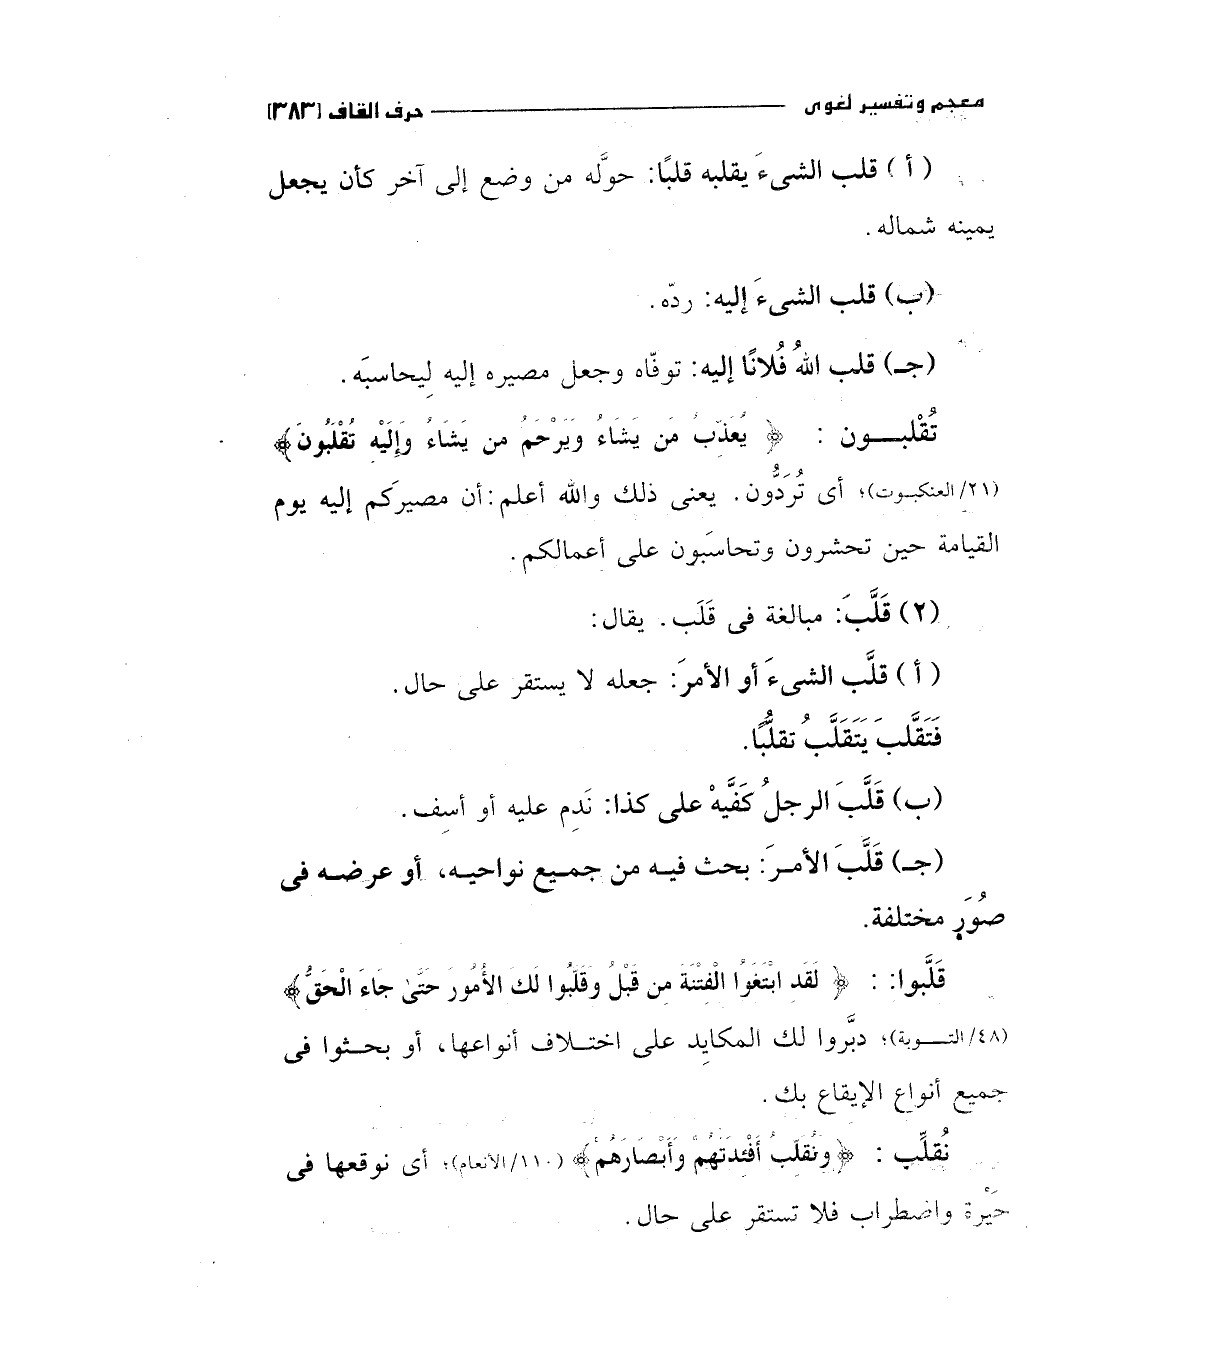 معجم وتفسير لغوى ــــــــ حرف القاف [٣٨٣]
( أ ) قلب الشىءَ يقلبه قلبًا: حوَّله من وضع إلى آخر كأن يجعل
يمينه شماله .
(ب) قلب الشىءَ إليه: ردّه .
(جـ) قلب اللهُ فُلانًا إليه: توفّاه وجعل مصيره إليه لِيحاسبَه .
تُقْلبــون : ﴿ يُعَذِّبُ مَن يَشَاءُ وَيَرْحَمُ مَن يَشَاءُ وَإِلَيْهِ تُقْلَبُونَ ﴾
(٢١/العنكبـوت)؛ أى تُرَدُّون . يعنى ذلك والله أعلم : أن مصيرَكم إليه يوم
القيامة حين تحشرون وتحاسَبون على أعمالكم .
(٢) قَلَّبَ: مبالغة فى قَلَب . يقال:
( أ ) قلَّب الشىءَ أو الأمرَ: جعله لا يستقر على حال .
فَتَقَلَّبَ يَتَقَلَّبُ تقلُّبًا.
(ب) قَلَّبَ الرجلُ كَفَّيْهْ على كذا: نَدِم عليه أو أسِف .
(جـ) قَلَّبَ الأمـرَ: بحث فيـه من جمـيع نواحيـه، أو عرضـه فى
صُوَرٍ مختلفة.
قَلَّبوا: : ﴿ لَقَدِ ابْتَغَوُا الْفِتْنَةَ مِن قَبْلُ وَقَلَّبُوا لَكَ الأُمُورَ حَتَّىٰ جَاءَ الْحَقُّ ﴾
(٤٨/التــوبة)؛ دبَّروا لك المكايِد على اختـلاف أنواعها، أو بحـثوا فى
جميع أنواع الإيقاع بك .
نُقلِّب : ﴿ وَنُقَلِّبُ أَفْئِدَتَهُمْ وَأَبْصَارَهُمْ ﴾ (١١٠/الأنعام)؛ أى نوقعها فى
حَيْرة واضطراب فلا تستقر على حال .